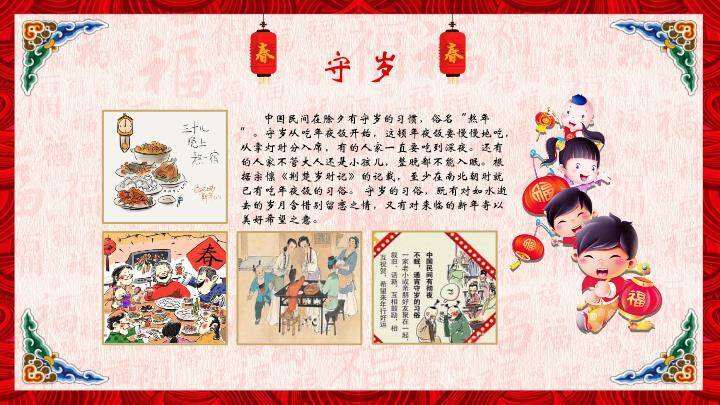 春
守岁
春
中国民间在除夕有守岁的习惯，俗名“熬年
”。守岁从吃年夜饭开始，这顿年夜饭要慢慢地吃，
从掌灯时分入席，有的人家一直要吃到深夜。还有
的人家不管大人还是小孩儿，整晚都不能入眠。根
据宗懔《荆楚岁时记》的记载，至少在南北朝时就
已有吃年夜饭的习俗。 守岁的习俗，既有对如水逝
去的岁月含惜别留恋之情，又有对来临的新年寄以
美好希望之意。
三十儿
晚上
熬一宿
春
中国民间有彻夜
不眠、通宵守岁的习俗
一家老小或亲朋好友聚在一起，
叙旧、话新、互相鼓励、相
互祝贺、希望来年行好运
福
福
福